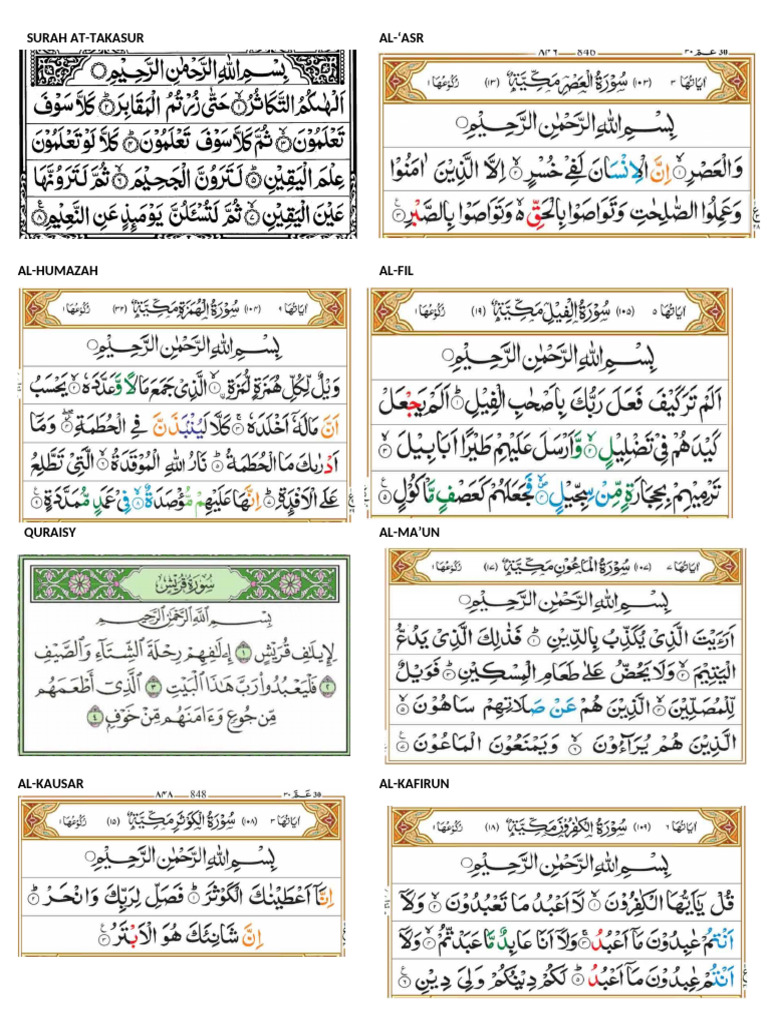 SURAH AT-TAKASUR
بِسْمِ اللهِ الرَّحْمٰنِ الرَّحِيْمِ
اَلْهٰىكُمُ التَّكَاثُرُۙ۱ حَتّٰى زُرْتُمُ الْمَقَابِرَؕ۲ كَلَّا سَوْفَ
تَعْلَمُوْنَۙ۳ ثُمَّ كَلَّا سَوْفَ تَعْلَمُوْنَؕ۴ كَلَّا لَوْ تَعْلَمُوْنَ
عِلْمَ الْيَقِيْنِؕ۵ لَتَرَوُنَّ الْجَحِيْمَۙ۶ ثُمَّ لَتَرَوُنَّهَا
عَيْنَ الْيَقِيْنِۙ۷ ثُمَّ لَتُسْـَٔلُنَّ يَوْمَىِٕذٍ عَنِ النَّعِيْمِ۸
AL-‘ASR
٨٤٦ 846 عـمّ ٣٠ 30
اٰيَاتُهَا ٣ (١٠٣) سُوْرَةُ الْعَصْرِ مَكِّيَّةٌ (١٣) رُكُوْعُهَا ١
بِسْمِ اللهِ الرَّحْمٰنِ الرَّحِيْمِ
وَالْعَصْرِۙ۱ اِنَّ الْاِنْسَانَ لَفِيْ خُسْرٍۙ۲ اِلَّا الَّذِيْنَ اٰمَنُوْا
وَعَمِلُوا الصّٰلِحٰتِ وَتَوَاصَوْا بِالْحَقِّ ەۙ وَتَوَاصَوْا بِالصَّبْرِ۳
AL-HUMAZAH
اٰيَاتُهَا ٩ (١٠٤) سُوْرَةُ الْهُمَزَةِ مَكِّيَّةٌ (٣٢) رُكُوْعُهَا ١
بِسْمِ اللهِ الرَّحْمٰنِ الرَّحِيْمِ
وَيْلٌ لِّكُلِّ هُمَزَةٍ لُّمَزَةِۙ۱ الَّذِيْ جَمَعَ مَالًا وَّعَدَّدَهٗۙ۲ يَحْسَبُ
اَنَّ مَالَهٗۤ اَخْلَدَهٗۚ۳ كَلَّا لَيُنْۢبَذَنَّ فِي الْحُطَمَةِؗۖ۴ وَمَاۤ
اَدْرٰىكَ مَا الْحُطَمَةُؕ۵ نَارُ اللهِ الْمُوْقَدَةُۙ۶ الَّتِيْ تَطَّلِعُ
عَلَى الْاَفْـِٕدَةِؕ۷ اِنَّهَا عَلَيْهِمْ مُّؤْصَدَةٌۙ۸ فِيْ عَمَدٍ مُّمَدَّدَةٍ۹
AL-FIL
اٰيَاتُهَا ٥ (١٠٥) سُوْرَةُ الْفِيْلِ مَكِّيَّةٌ (١٩) رُكُوْعُهَا ١
بِسْمِ اللهِ الرَّحْمٰنِ الرَّحِيْمِ
اَلَمْ تَرَ كَيْفَ فَعَلَ رَبُّكَ بِاَصْحٰبِ الْفِيْلِؕ۱ اَلَمْ يَجْعَلْ
كَيْدَهُمْ فِيْ تَضْلِيْلٍۙ۲ وَّاَرْسَلَ عَلَيْهِمْ طَيْرًا اَبَابِيْلَۙ۳
تَرْمِيْهِمْ بِحِجَارَةٍ مِّنْ سِجِّيْلٍۙ۴ فَجَعَلَهُمْ كَعَصْفٍ مَّاْكُوْلٍ۵
QURAISY
سُورَةُ قُرَيْشٍ
بِسْمِ ٱللَّهِ ٱلرَّحْمَٰنِ ٱلرَّحِيمِ
لِإِيلَٰفِ قُرَيْشٍ ١ إِۦلَٰفِهِمْ رِحْلَةَ ٱلشِّتَآءِ وَٱلصَّيْفِ
٢ فَلْيَعْبُدُوا۟ رَبَّ هَٰذَا ٱلْبَيْتِ ٣ ٱلَّذِىٓ أَطْعَمَهُم
مِّن جُوعٍ وَءَامَنَهُم مِّنْ خَوْفٍۭ ٤
AL-MA’UN
اٰيَاتُهَا ٧ (١٠٧) سُوْرَةُ الْمَاعُوْنِ مَكِّيَّةٌ (١٧) رُكُوْعُهَا ١
بِسْمِ اللهِ الرَّحْمٰنِ الرَّحِيْمِ
اَرَءَيْتَ الَّذِيْ يُكَذِّبُ بِالدِّيْنِؕ۱ فَذٰلِكَ الَّذِيْ يَدُعُّ
الْيَتِيْمَۙ۲ وَلَا يَحُضُّ عَلٰى طَعَامِ الْمِسْكِيْنِؕ۳ فَوَيْلٌ
لِّلْمُصَلِّيْنَۙ۴ الَّذِيْنَ هُمْ عَنْ صَلَاتِهِمْ سَاهُوْنَۙ۵
الَّذِيْنَ هُمْ يُرَآءُوْنَۙ۶ وَيَمْنَعُوْنَ الْمَاعُوْنَ۷
AL-KAUSAR
٨٤٨ 848 عـمّ ٣٠ 30
اٰيَاتُهَا ٣ (١٠٨) سُوْرَةُ الْكَوْثَرِ مَكِّيَّةٌ (١٥) رُكُوْعُهَا ١
بِسْمِ اللهِ الرَّحْمٰنِ الرَّحِيْمِ
اِنَّاۤ اَعْطَيْنٰكَ الْكَوْثَرَؕ۱ فَصَلِّ لِرَبِّكَ وَانْحَرْؕ۲
اِنَّ شَانِئَكَ هُوَ الْاَبْتَرُ۳
AL-KAFIRUN
اٰيَاتُهَا ٦ (١٠٩) سُوْرَةُ الْكٰفِرُوْنَ مَكِّيَّةٌ (١٨) رُكُوْعُهَا ١
بِسْمِ اللهِ الرَّحْمٰنِ الرَّحِيْمِ
قُلْ يٰۤاَيُّهَا الْكٰفِرُوْنَۙ۱ لَاۤ اَعْبُدُ مَا تَعْبُدُوْنَۙ۲ وَلَاۤ
اَنْتُمْ عٰبِدُوْنَ مَاۤ اَعْبُدُۚ۳ وَلَاۤ اَنَا عَابِدٌ مَّا عَبَدْتُّمْۙ۴ وَلَاۤ
اَنْتُمْ عٰبِدُوْنَ مَاۤ اَعْبُدُؕ۵ لَكُمْ دِيْنُكُمْ وَلِيَ دِيْنِ۶